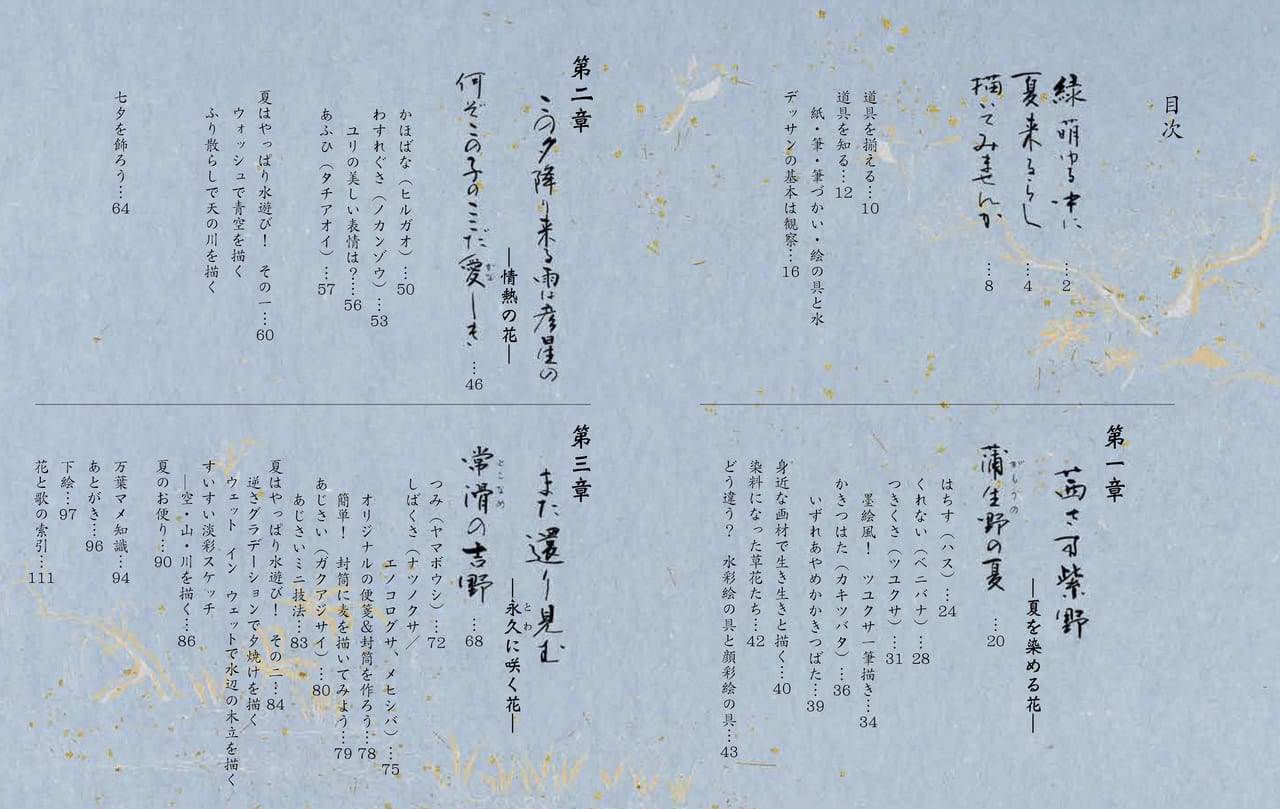 目次
緑萌ゆる中に…2
夏来るらし…4
描いてみませんか…8
道具を揃える…10
道具を知る…12
紙・筆・筆づかい・絵の具と水
デッサンの基本は観察…16
第一章
茜さす紫野
蒲生野の夏…20
がもうの
―夏を染める花―
はちす（ハス）…24
くれない（ベニバナ）…28
つきくさ（ツユクサ）…31
墨絵風！　ツユクサ一筆描き…34
かきつはた（カキツバタ）…36
いずれあやめかかきつばた…39
身近な画材で生き生きと描く…40
染料になった草花たち…42
どう違う？　水彩絵の具と顔彩絵の具…43
第二章
この夕降り来る雨は彦星の
―情熱の花―
何ぞこの子のここだ愛しき…46
かな
かほばな（ヒルガオ）…50
わすれぐさ（ノカンゾウ）…53
ユリの美しい表情は？…56
あふひ（タチアオイ）…57
夏はやっぱり水遊び！　その一…60
ウォッシュで青空を描く
ふり散らしで天の川を描く
七夕を飾ろう…64
第三章
また還り見む
―永久に咲く花―
とわ
常滑の吉野…68
とこなめ
つみ（ヤマボウシ）…72
しばくさ（ナツノクサ／
エノコログサ、メヒシバ）…75
オリジナルの便箋&封筒を作ろう…78
簡単！　封筒に麦を描いてみよう…79
あじさい（ガクアジサイ）…80
あじさいミニ技法…83
夏はやっぱり水遊び！　その二…84
逆さグラデーションで夕焼けを描く
ウェット　イン　ウェットで水辺の木立を描く
すいすい淡彩スケッチ
―空・山・川を描く…86
夏のお便り…90
万葉マメ知識…94
あとがき…96
下絵…97
花と歌の索引…111